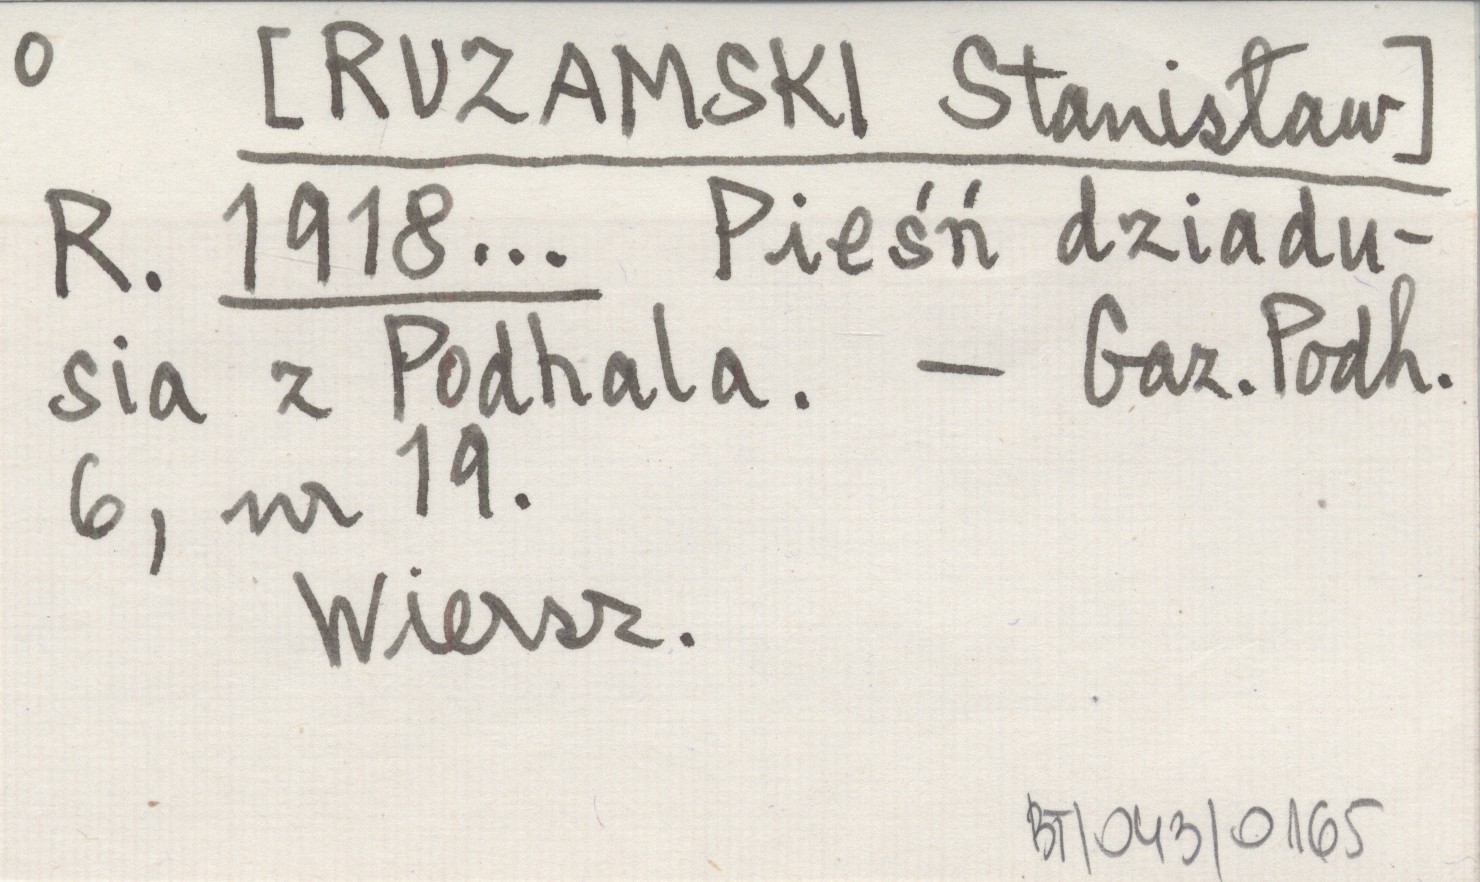 o [RUZAMSKI Stanisław]
R. 1918... Pieśń dziadu-
sia z Podhala. — Gaz. Podh.
6, nr 19.
Wiersz.
BT/043/0165